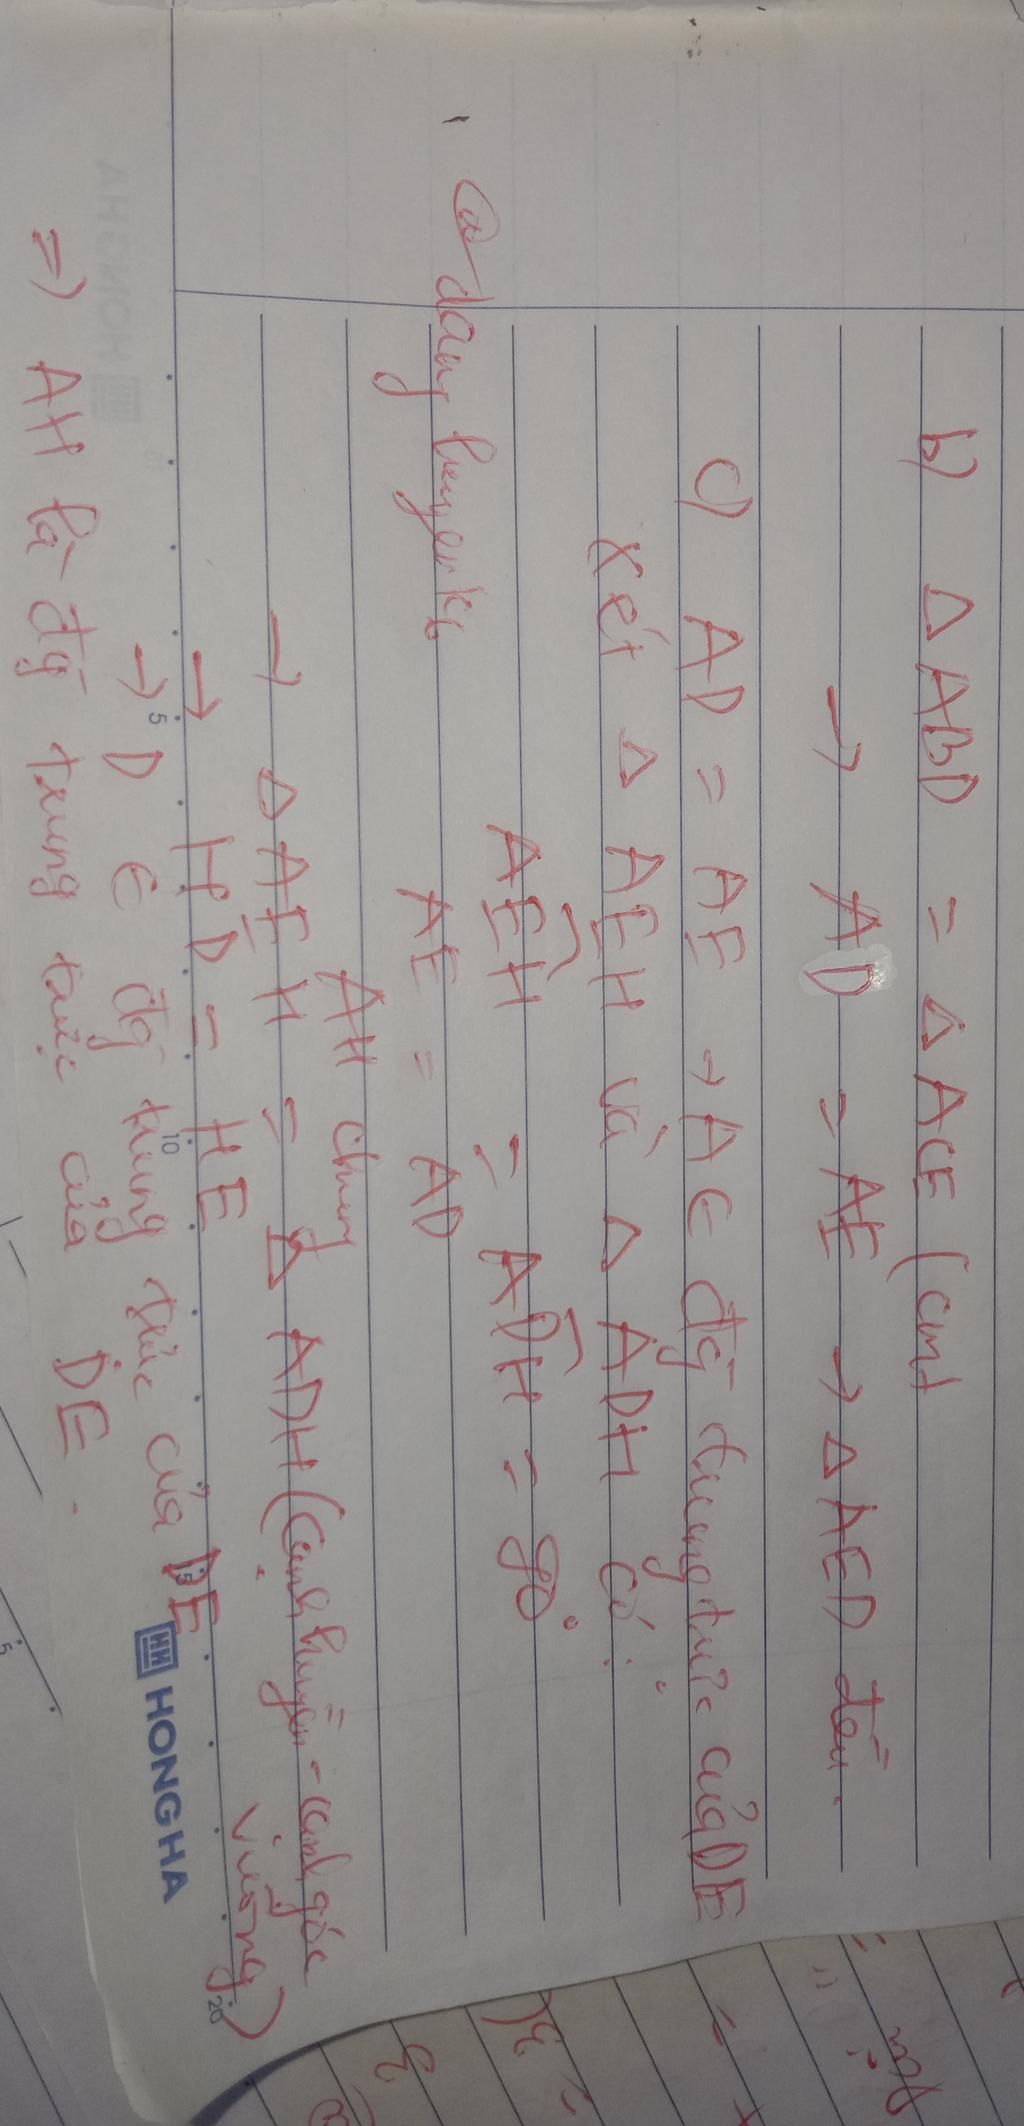 b) Δ ABD = Δ ACE (cmt
→ AD = AE → Δ AED đều.
c) AD = AE → A ∈ đg trung trực của DE
Xét Δ AEH và Δ ADH có:
AEH = ADH = 90°
@danghuyenk6
AE = AD
AH chung
→ Δ AEH = Δ ADH (cạnh huyền - cạnh góc
vuông)
→ HD = HE
→ D ∈ đg trung trực của DE
=> AH là đg trung trực của DE.
HONG HA
5
10
15
20